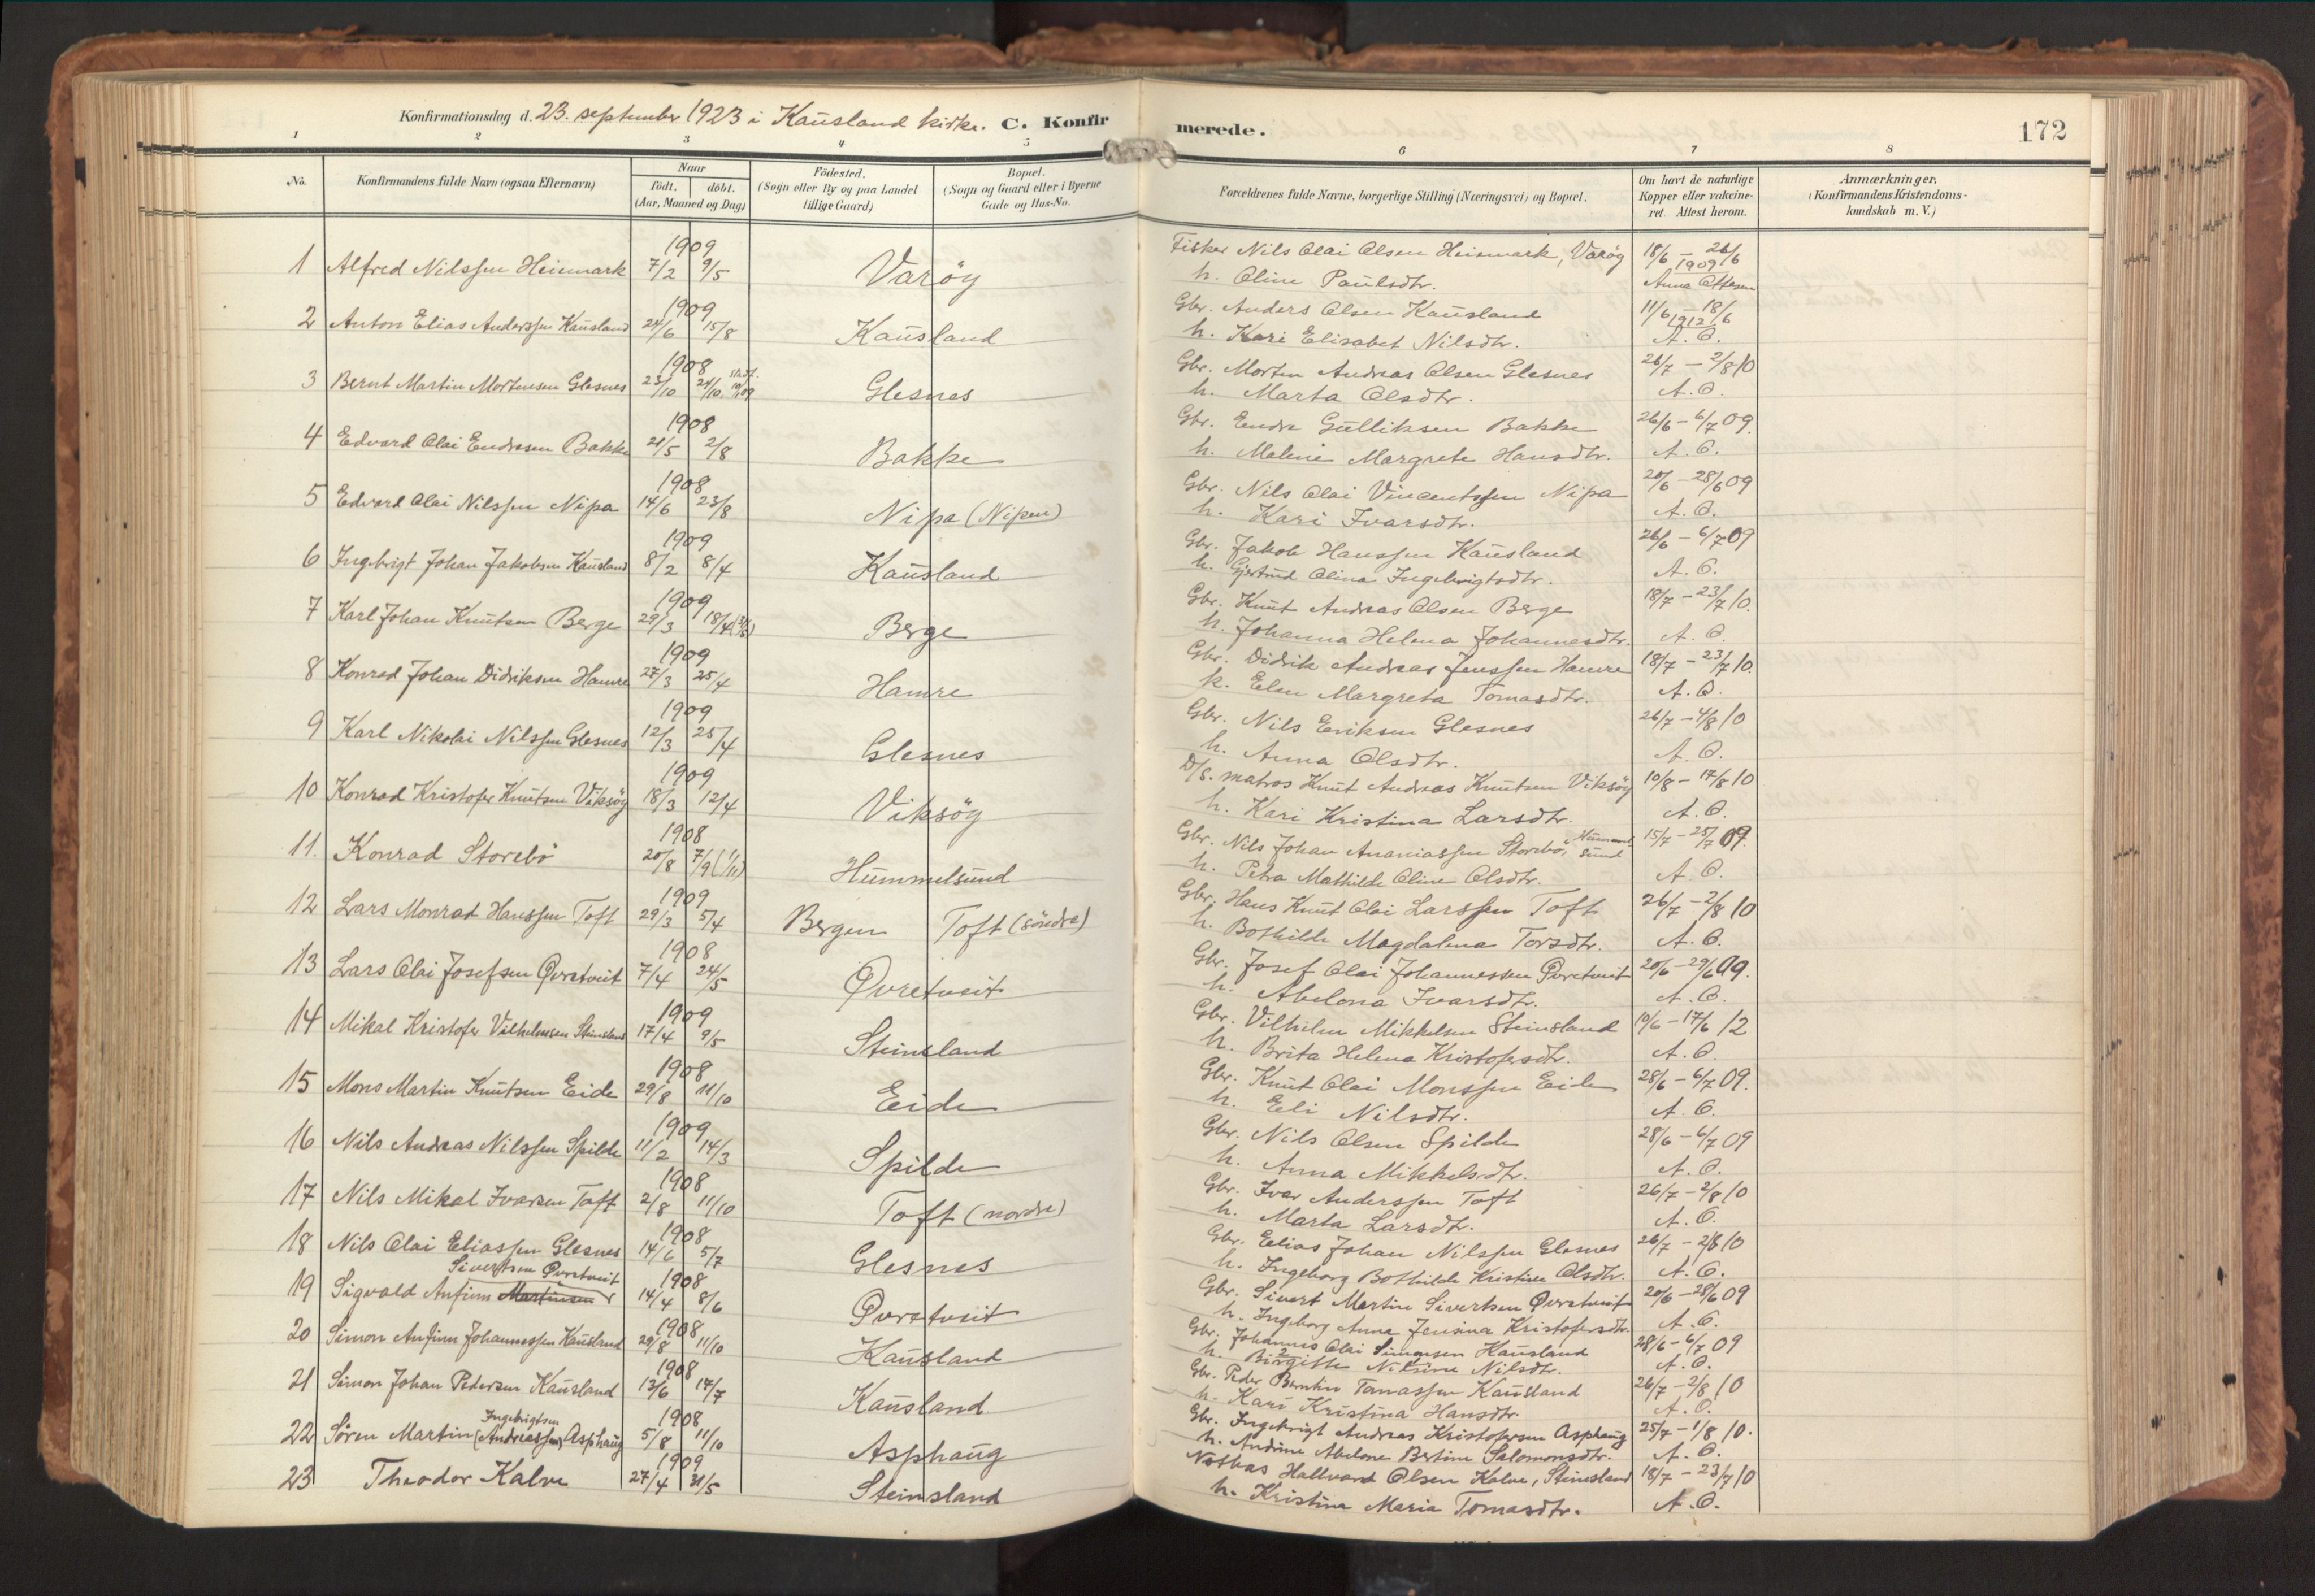 Konfirmationsdag d. 23. september 1923 i Kausland kirke. C. Konfirmerede. 172
1 2 3 4 5 6 7 8
No. Konfirmandens fulde Navn (ogsaa Efternavn) Naar født. døbt. (Aar, Maaned og Dag) Fødested. (Sogn eller By og paa Landet tillige Gaard) Bopæl. (Sogn og Gaard eller i Byerne Gade og Hus-No. Forældrenes fulde Navne, borgerlige Stilling (Næringsvei) og Bopæl. Om havt de naturlige Kopper eller vakcineret. Attest herom. Anmærkninger. (Konfirmandens Kristendomskundskab m. V.)
1 Alfred Nilssen Heiemark 1909 7/2 9/5 Varöy Fisker Nils Olai Olsen Heiemark, Varöy 18/6 – 26/6 1909
h. Oline Paulsdtr. Anna Ottesen
2 Anton Elias Anderssen Kausland 1909 24/6 15/8 Kausland Gbr. Anders Olsen Kausland 11/6 – 18/6 1912
h. Kari Elisabet Nilsdtr. A. O.
3 Bernt Martin Mortensen Glesnes 1908 23/10 24/10 Glesnes Gbr. Morten Andreas Olsen Glesnes 26/7 – 2/8 10
h. Marta Olsdtr. A. O.
4 Edvard Olai Endresen Bakke 1908 21/5 2/8 Bakke Gbr. Endre Gulliksen Bakke 26/6 – 6/7 09.
h. Malene Margrete Hansdtr. A. O.
5 Edvard Olai Nilssen Nipa 1908 14/6 23/8 Nipa (Nipen) Gbr. Nils Olai Vincentssen Nipa 20/6 – 28/6 09
h. Kari Ivarsdtr. A. O.
6 Ingebrigt Johan Jakobsen Kausland 1909 8/2 8/4 Kausland Gbr. Jakob Hanssen Kausland 26/6 – 6/7 09
h. Gjertrud Olina Ingebrigtsdtr. A. O.
7 Karl Johan Knutsen Berge 1909 29/3 18/4 Berge Gbr. Knut Andreas Olsen Berge 18/7 – 23/7 10.
h. Johanna Helena Johannesdtr. A. O.
8 Konrad Johan Didriksen Hamre 1909 27/3 25/4 Hamre Gbr. Didrik Andreas Jenssen Hamre 18/7 – 23/7 10.
h. Elen Margreta Tomasdtr. A. O.
9 Karl Nikolai Nilssen Glesnes 1909 12/3 25/4 Glesnes Gbr. Nils Eriksen Glesnes 26/7 – 4/8 10
h. Anna Olsdtr. A. O.
10 Konrad Kristofer Knutsen Viksöy 1909 18/3 12/4 Viksöy D/S. matros Knut Andreas Knutsen Viksöy 10/8 – 17/8 10
h. Kari Kristina Larsdtr. A. O.
11. Konrad Storebö 1908 20/8 7/9 (1/11) Hummelsund Gbr. Nils Johan Ananiassen Storebö, Hummelsund 15/7 – 25/7 09.
h. Petra Mathilde Oline Olsdtr. A. O.
12 Lars Monrad Hanssen Toft 1909 29/3 5/4 Bergen Toft (söndre) Gbr. Hans Knut Olai Larssen Toft 26/7 – 2/8 10
h. Bothilde Magdalena Torsdtr. A. O.
13 Lars Olai Josefsen Øvretveit 1908 7/4 24/5 Øvretveit Gbr. Josef Olai Johannessen Øvretveit 20/6 – 29/6 09.
h. Abelona Ivarsdtr. A. O.
14 Mikal Kristofer Vilhelmsen Steinsland 1909 17/4 9/5 Steinsland Gbr. Vilhelm Mikkelsen Steinsland 10/6 – 17/6 12
h. Brita Helena Kristofersdtr. A. O.
15 Mons Martin Knutsen Eide 1908 29/8 11/10 Eide Gbr. Knut Olai Monssen Eide 28/6 – 6/7 09.
h. Eli Nilsdtr. A. O.
16 Nils Andreas Nilssen Spilde 1909 11/2 14/3 Spilde Gbr. Nils Olsen Spilde 28/6 – 6/7 09
h. Anna Mikkelsdtr. A. O.
17 Nils Mikal Ivarsen Toft 1908 2/8 11/10 Toft (nordre) Gbr. Ivar Anderssen Toft 26/7 – 2/8 10
h. Marta Larsdtr. A. O.
18 Nils Olai Eliassen Glesnes 1908 14/6 5/7 Glesnes Gbr. Elias Johan Nilssen Glesnes 26/7 – 2/8 10
h. Ingeborg Bothilde Kristine Olsdtr. A. O.
Sivertsen Øvretveit
19 Sigvald Anfinn Martinsen 1908 14/4 8/6 Øvretveit Gbr. Sivert Martin Sivertsen Øvretveit 20/6 – 28/6 09
h. Ingeborg Anna Jensina Kristofersdtr. A. O.
20 Simon Anfinn Johannessen Kausland 1908 29/8 11/10 Kausland Gbr. Johannes Olai Simonsen Kausland 28/6 – 6/7 09
h. Birgitte Nilsine Nilsdtr. A. O.
21 Simon Johan Pedersen Kausland 1908 13/6 17/7 Kausland Gbr. Peder Berntin Tomassen Kausland 26/7 – 2/8 10
h. Kari Kristina Hansdtr. A. O.
Ingebrigtsen
22 Søren Martin (Andreassen) Asphaug 1908 5/8 11/10 Asphaug Gbr. Ingebrigt Andreas Kristofersen Asphaug 25/7 – 1/8 10.
h. Andrine Abelone Bertine Salomonsdtr. A. O.
23 Theodor Kalve 1909 27/4 31/5 Steinsland Notbas Hallvard Olsen Kalve, Steinsland 18/7 – 23/7 10
h. Kristine Maria Tomasdtr. A. O.